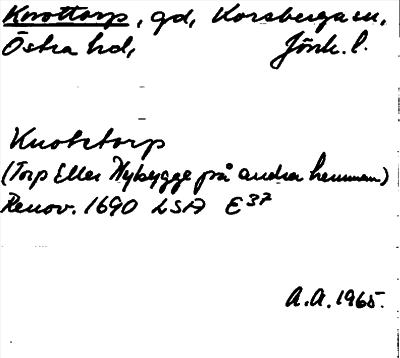 Knottorp, gd, Korsberga sn,
Östra hd, Jönk. l.
Knotetorp
(Torp Eller Nybygge på andra hemman)
Renov. 1690 LSA E37
A.A. 1965.